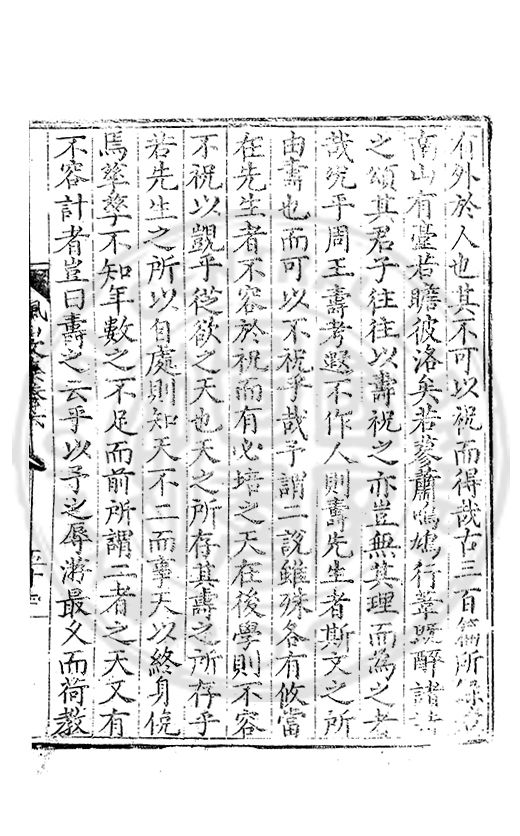 有外於人也其不可以祝而得哉古三百篇所錄若
南山有臺若瞻彼洛矣若蓼蕭鳴鳩行葦既醉諸詩
之頌其君子往往以壽祝之亦豈無其理而為之者
哉況乎周王壽考遐不作人則壽先生者斯文之所
由壽也而可以不祝乎哉予謂二說雖殊各有攸當
在先生者不容於祝而有必培之天在後學則不容
不祝以覬乎從欲之天也天之所存其壽之所存乎
若先生之所以自處則知天不二而事天以終身俛
焉孳孳不知年數之不足而前所謂二者之天又有
不容計者豈曰壽之云乎以予之辱游最久而荷教